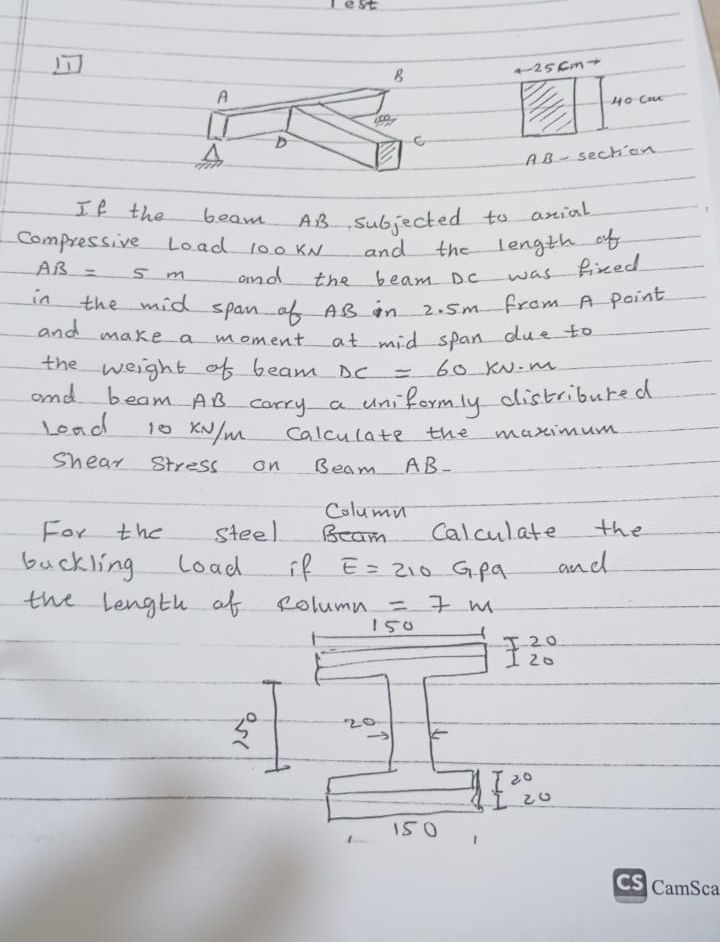 Test
1
A
B
D
C
25 cm
40 cm
AB - section
If the beam AB subjected to axial
compressive Load 100 KN and the length of
AB = 5 m and the beam DC was fixed
in the mid span of AB in 2.5m from A point
and make a moment at mid span due to
the weight of beam DC = 60 KN.m
and beam AB carry a uniformly distributed
Load 10 KN/m Calculate the maximum
Shear Stress on Beam AB-
Column
For the steel Beam Calculate the
buckling Load if E = 210 Gpa and
the Length of Column = 7 m
150
20
20
20
20
20
150
CS CamSca